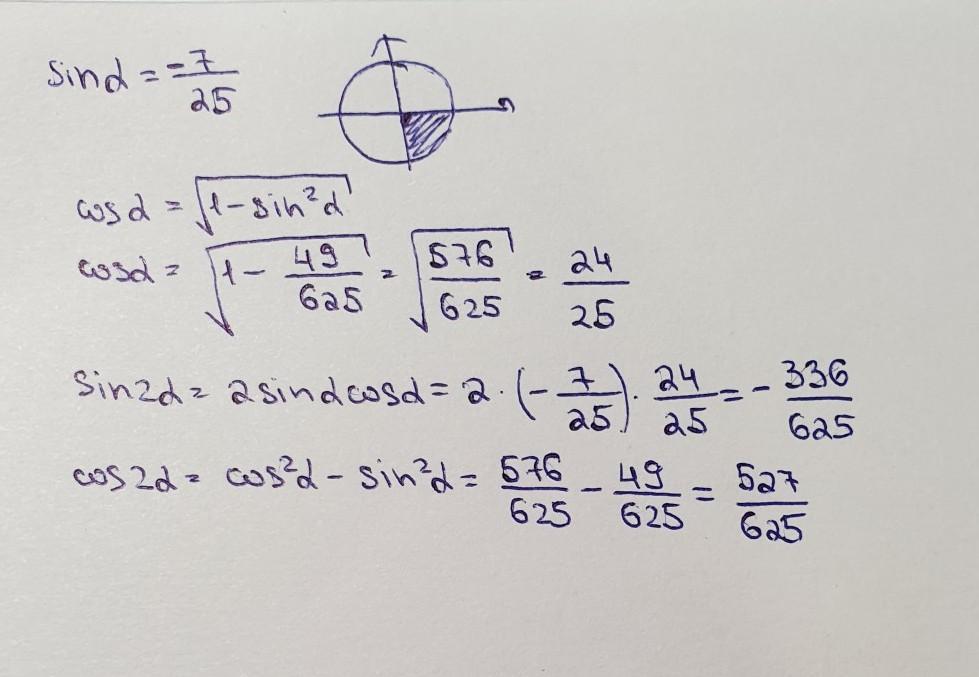 sinα = -7/25
cosα = √(1-sin²α)
cosα = √(1 - 49/625) = √(576/625) = 24/25
sin2α = 2sinαcosα = 2·(-7/25)·24/25 = -336/625
cos2α = cos²α - sin²α = 576/625 - 49/625 = 527/625